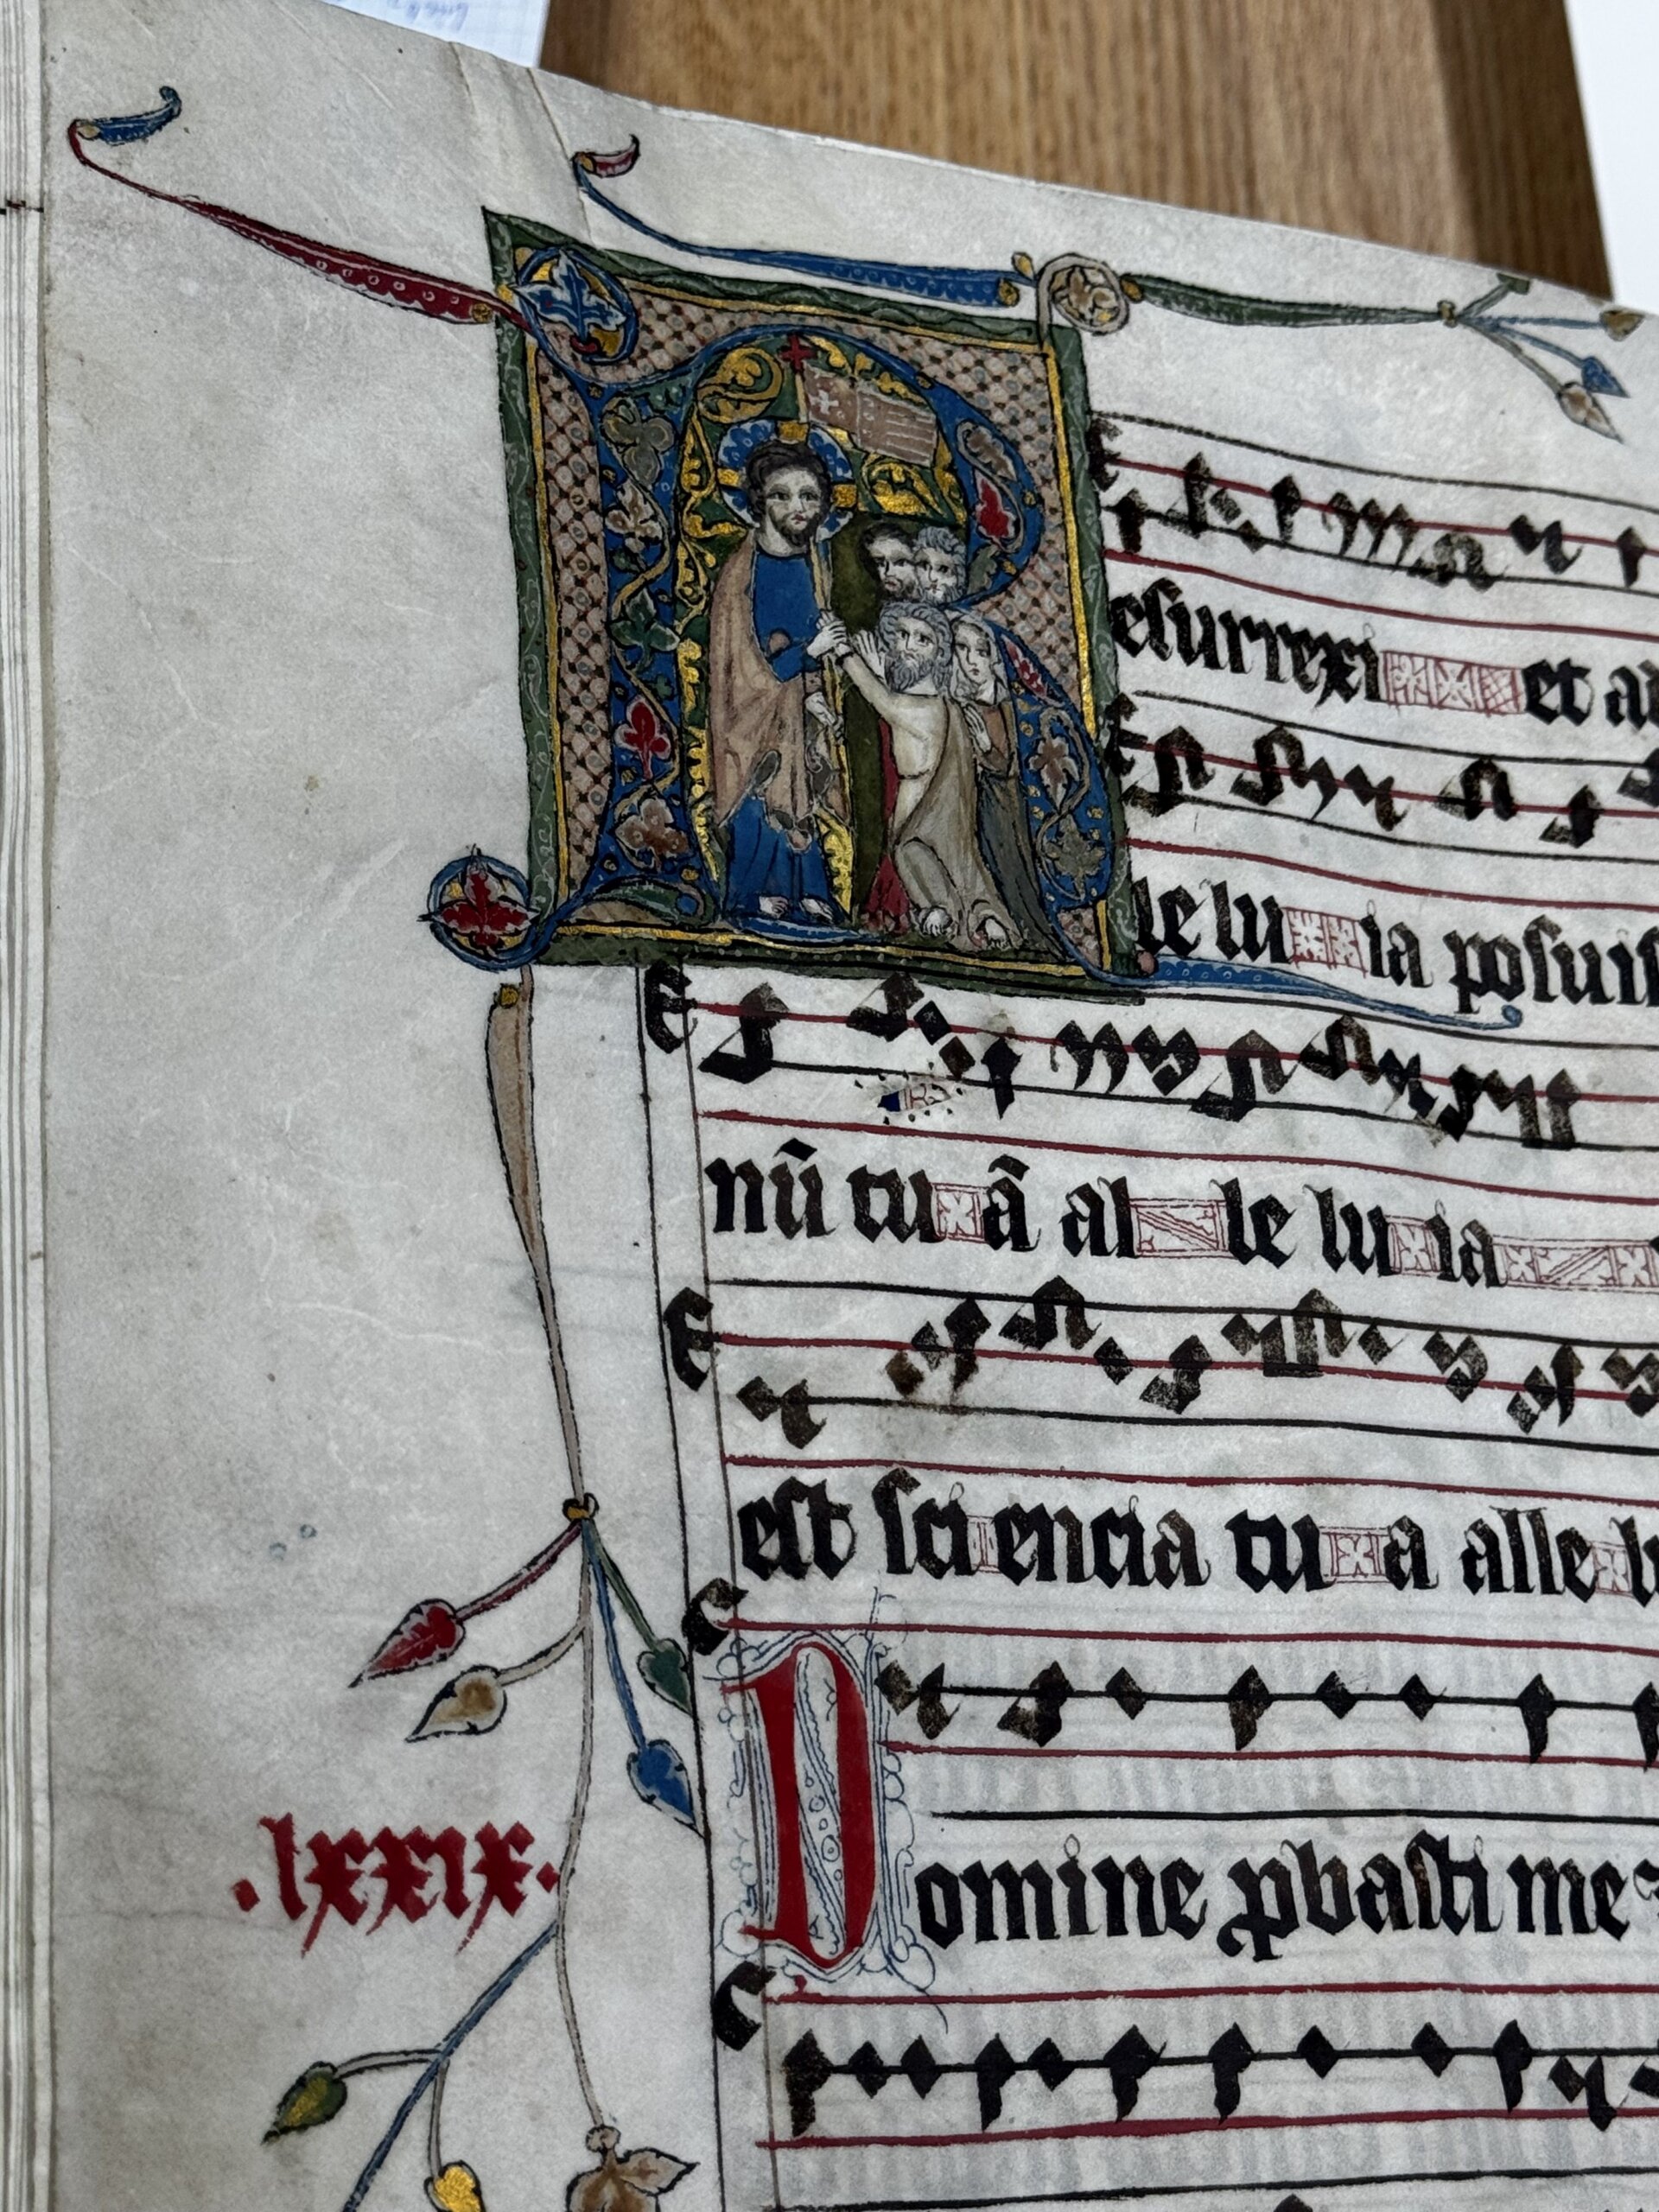 Resurrexi et
le lu ia posuis
nū tu ā al le lu ia
est sci encia tu a alle l
Domine ꝓbasti me
.lxxix.